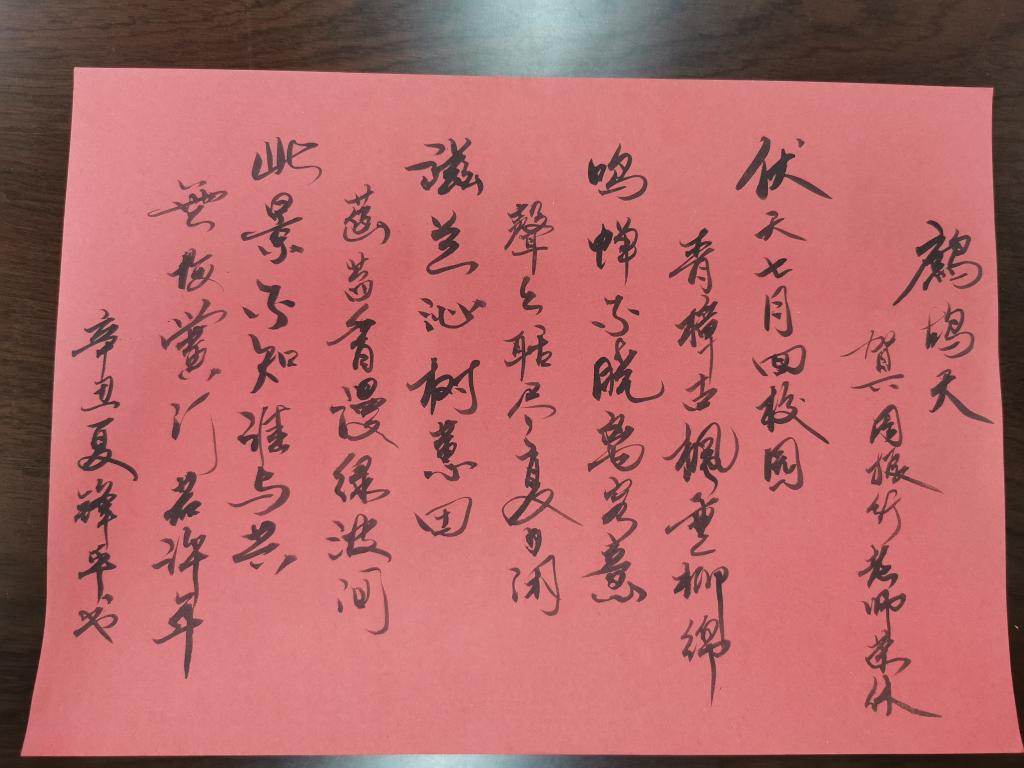 鹧鸪天
贺周振竹老师荣休
伏天七月回校园
青樟古枫垂柳绵
鸣蝉不晓离客意
声声聒尽夏日闲
滋兰沁树蕙田
菡萏香漫绿波间
此景不知谁与共
无悔黉门若许年
辛丑夏